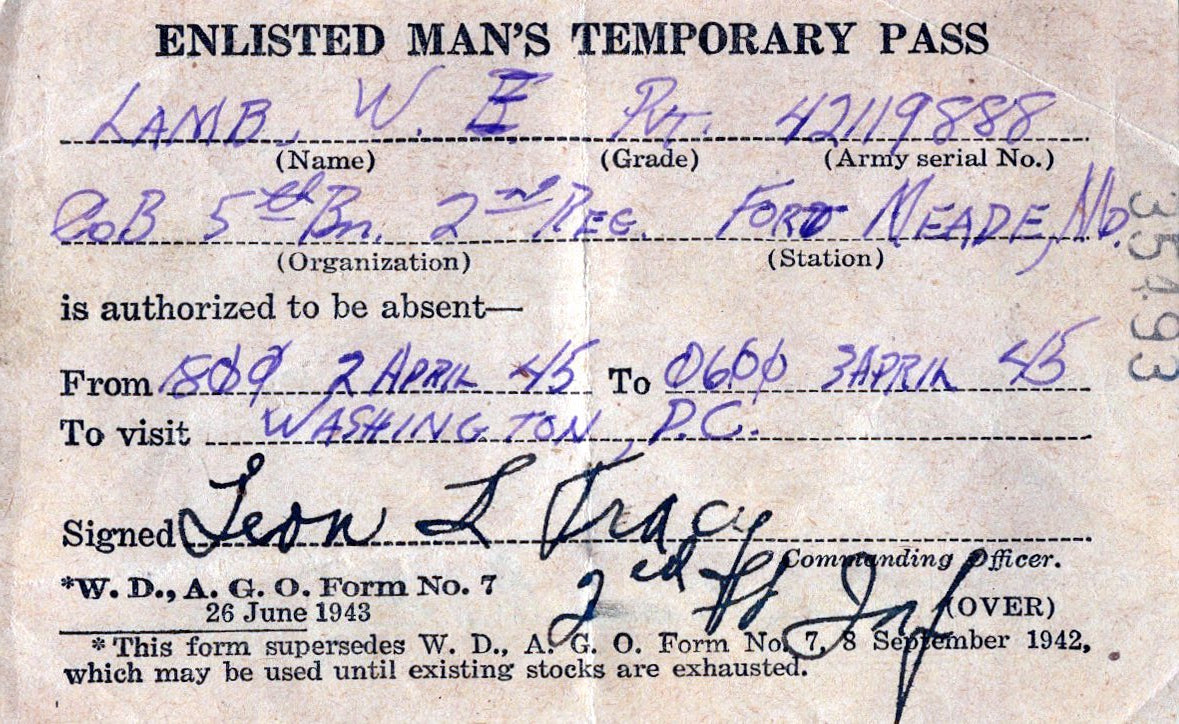 ENLISTED MAN'S TEMPORARY PASS
LAMB, W. E Pvt. 42119888
(Name) (Grade) (Army serial No.)
Co B 5th Bn. 2nd REG. FORT MEADE, Md.
(Organization) (Station)
is authorized to be absent—
From 1800 2 APRIL 45 To 0600 3 APRIL 45
To visit WASHINGTON, D.C.
Signed Leon L Tracy
Commanding Officer.
2ed Lt Inf
*W. D., A. G. O. Form No. 7
26 June 1943
(OVER)
* This form supersedes W. D., A. G. O. Form No. 7, 8 September 1942,
which may be used until existing stocks are exhausted.
35493